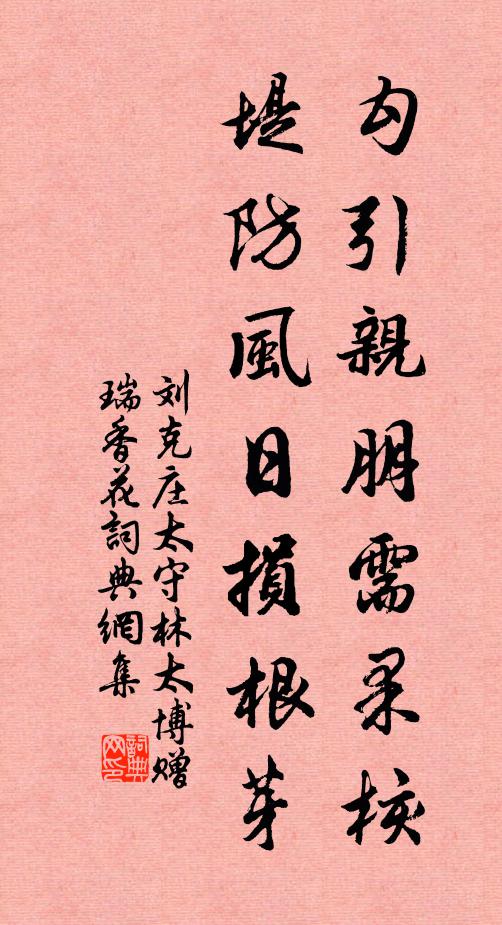 勾引親朋需果核
堤防風日損根芽
刘克庄太守林太博赠
瑞香花詞典網集
詞典
网印